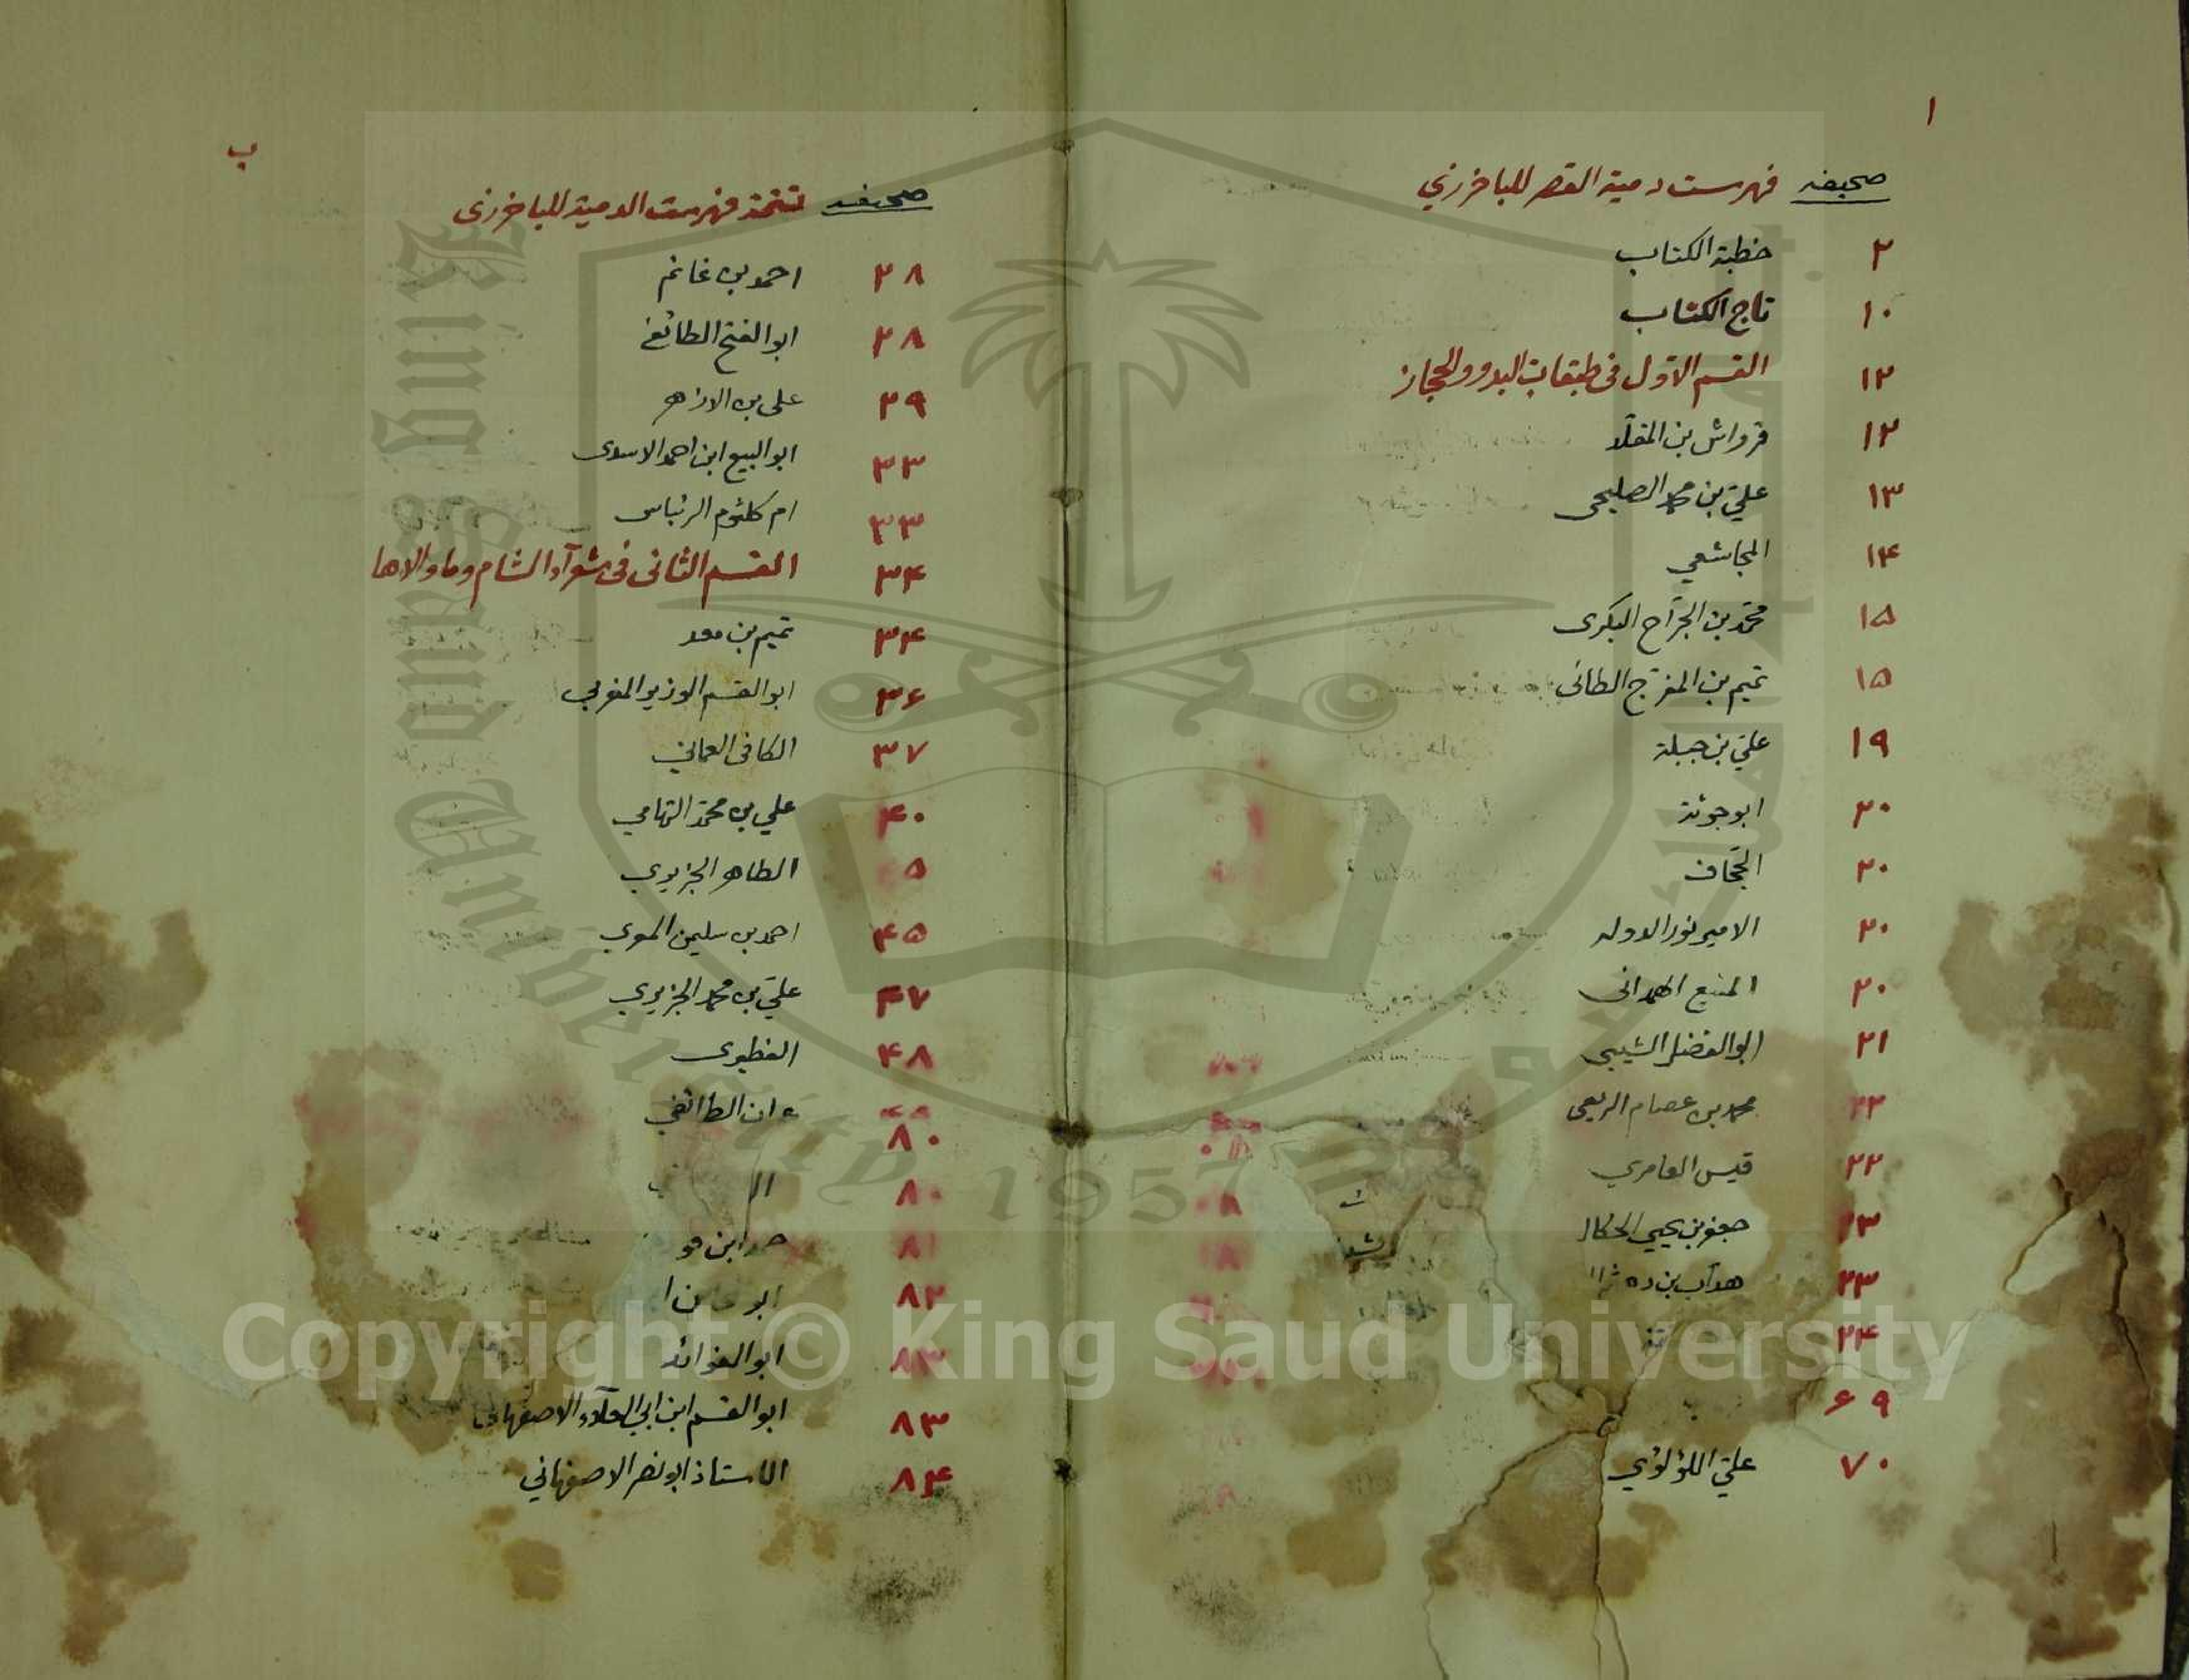 ا
صحيفه فهرست دمية القصر للباخرزي
٢ خطبة الكتاب
١٠ تاج الكتاب
١٢ القسم الاوّل فى طبقات البدو والحجاز
١٢ قرواش بن المقلّد
١٣ عليّ بن محمد الصليحى
١٤ المجاشعي
١٥ محمّد بن الجرّاح البكرى
١٥ تميم بن المفرّج الطائى
١٩ عليّ بن جبلة
٢٠ ابو جوثة
٢٠ الجحّاف
٢٠ الامير نور الدوله
٢٠ المنيع الهمدانى
٢١ ابو الفضل الشيبى
٢٢ محمد بن عصام الربعى
٢٢ قيس العامري
٢٣ جعفر بن يحيى
٢٣ هدّاب بن
٢٤
٦٩
٧٠ عليّ اللؤلؤي
ب
صحيفه تتمة فهرست الدمية للباخرزى
٢٨ احمد بن غانم
٢٨ ابو الفتح الطائفى
٢٩ على بن الازهر
٣٣ ابو البيع ابن احمد الاسدى
٣٣ ام كلثوم
٣٤ القسم الثانى فى شعرآء الشام وما والاها
٣٤ تميم بن معد
٣٦ ابو القسم الوزير المغربي
٣٧ الكافى العمانى
٤٠ علي بن محمّد التهامي
٥ الطاهر الجزيري
٤٥ احمد بن سليمن المعري
٤٧ عليّ بن محمد الجزيري
٤٨ المطيرى
الطائفي
٨٠
٨٠
٨١ ابن
٨٢ ابو
٨٣ ابو الفوائد
٨٣ ابو القسم ابن ابي العلآء الاصفهانى
٨٤ الاستاذ ابو نصر الاصفهاني
King Saud University
1957
Copyright © King Saud University